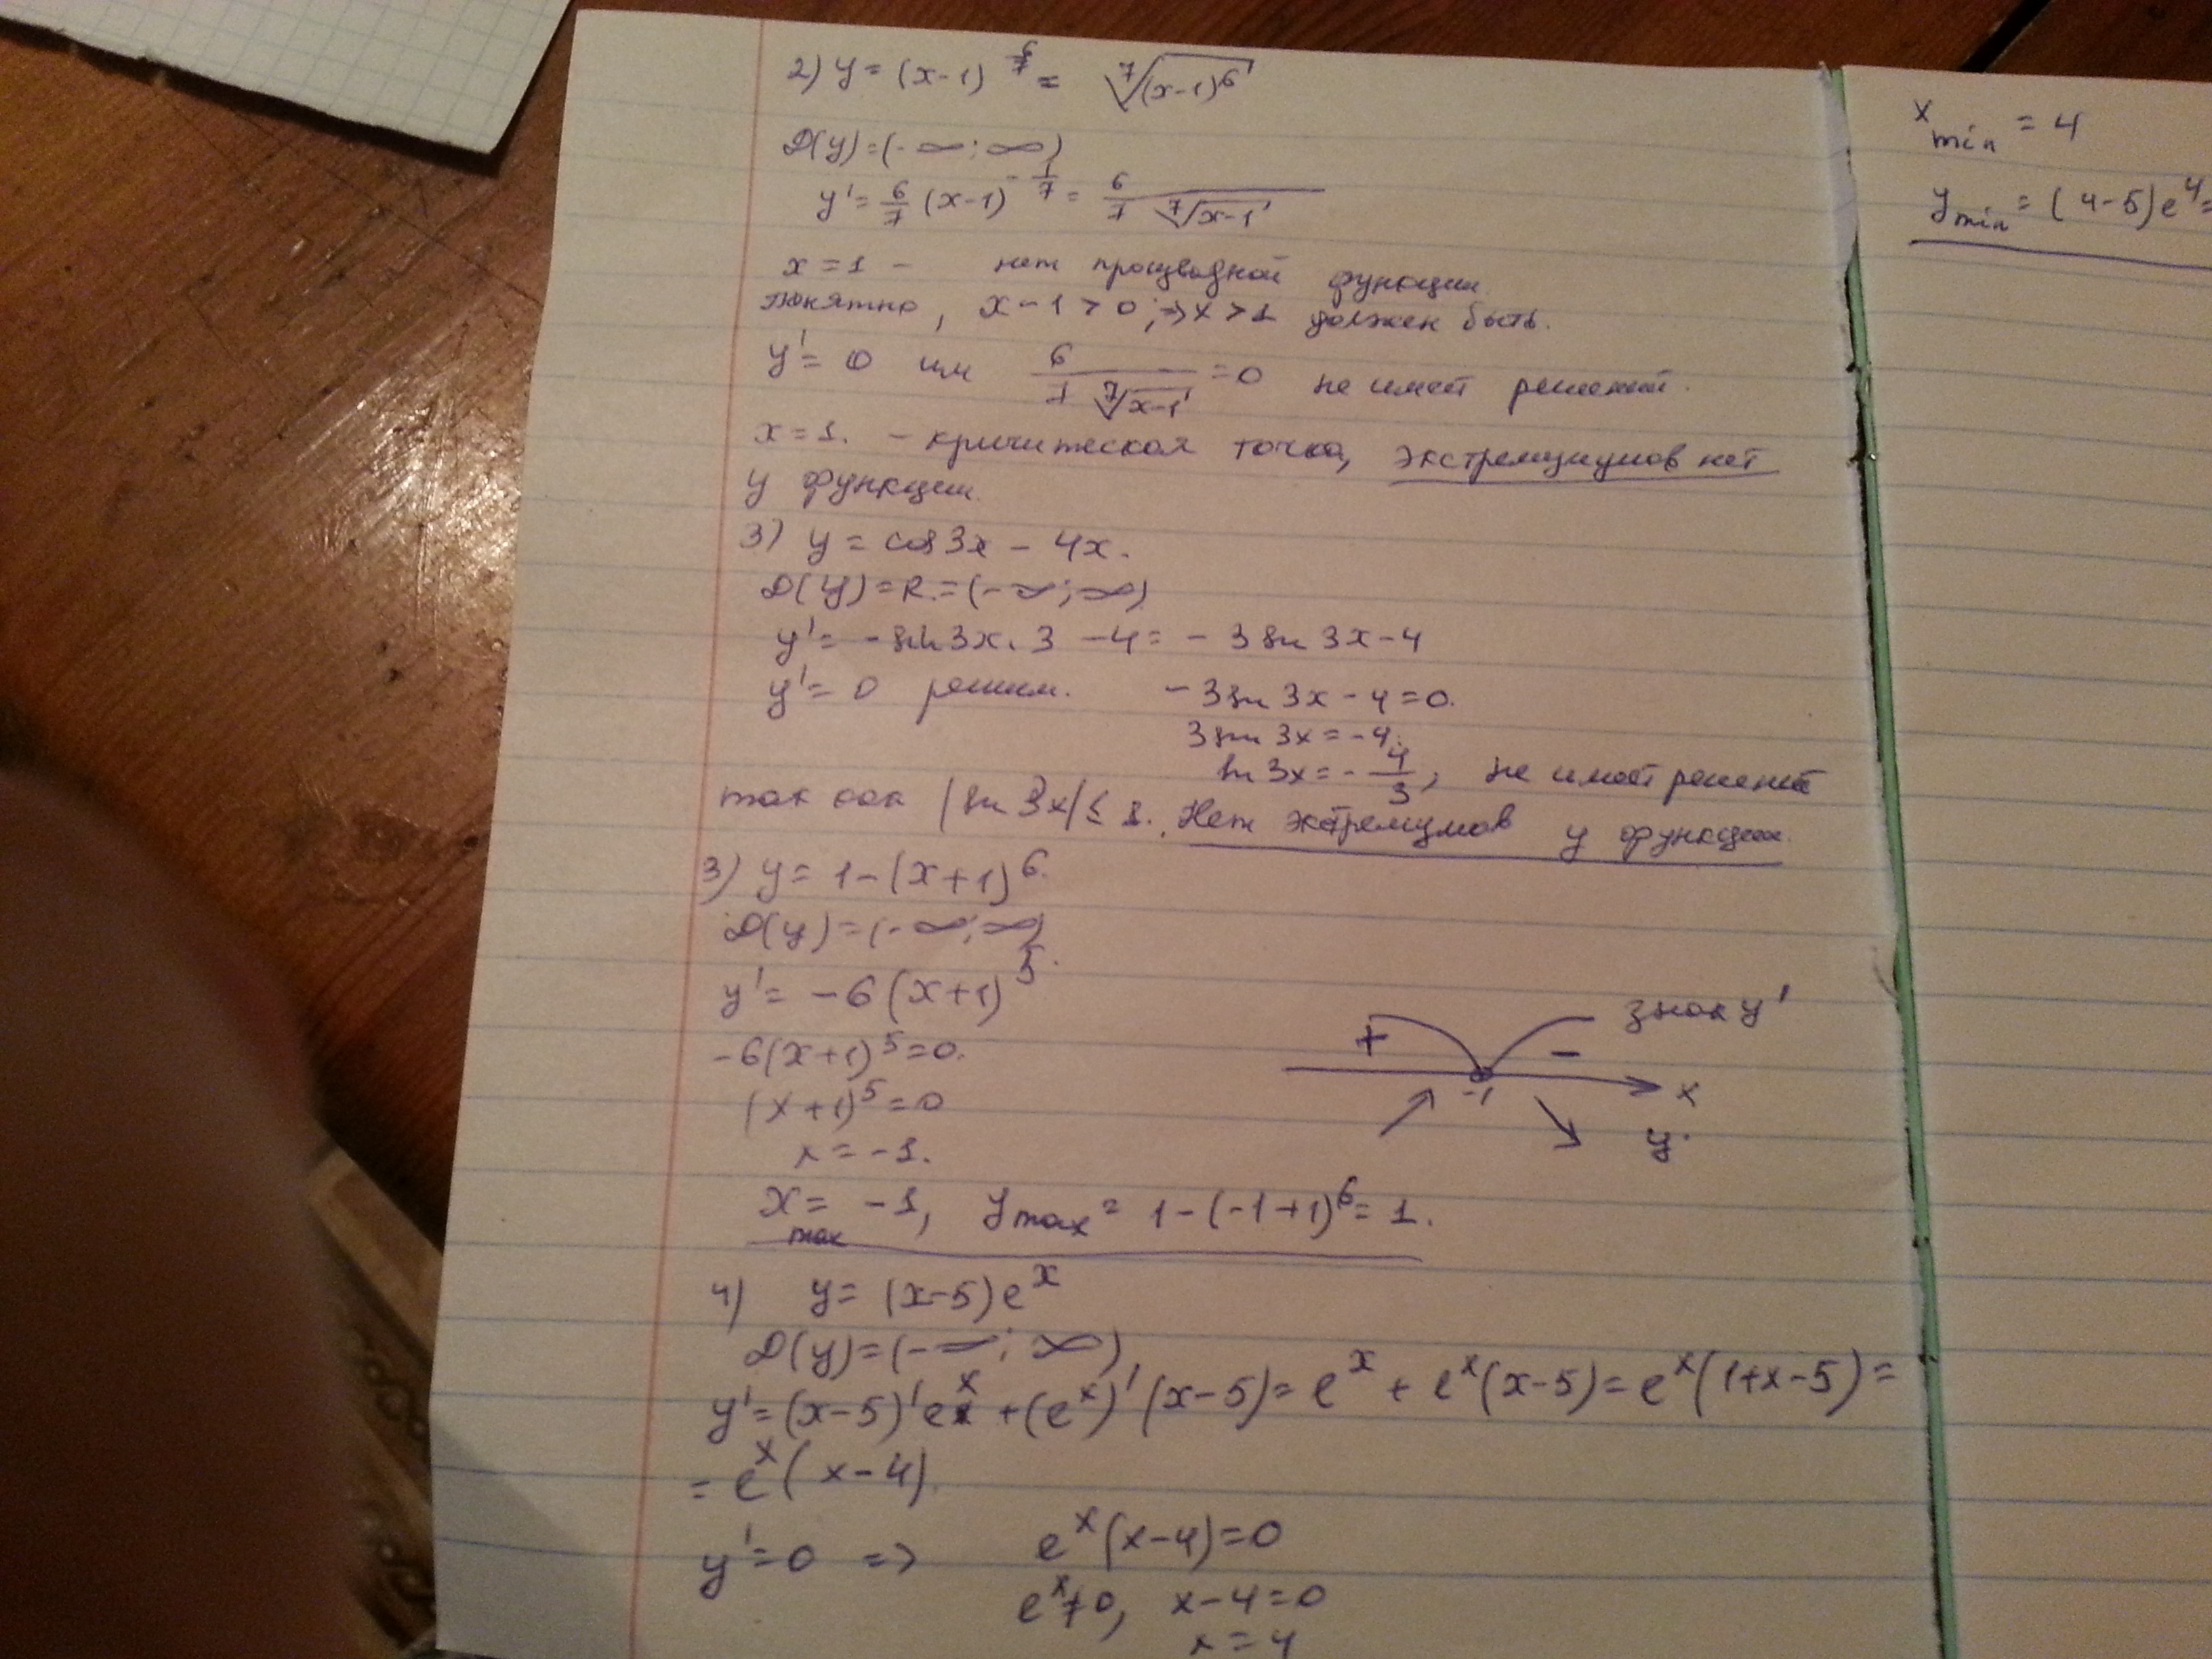 2) y = (x-1)^{6/7} = \sqrt[7]{(x-1)^6}
D(y)=(-∞;∞)
y' = 6/7 (x-1)^{-1/7} = 6/(7 \sqrt[7]{x-1})
x=1 - нет производной функции
понятно, x-1>0; ⇒ x>1 должен быть.
y'=0 или 6/(7 \sqrt[7]{x-1}) = 0 не имеет решений.
x=1. - критическая точка, экстремумов нет
у функции.
3) y = cos3x - 4x.
D(y)=R.=(-∞;∞)
y' = -sin3x·3 -4 = -3 sin 3x-4
y'=0 решим. -3sin 3x-4=0.
3sin 3x=-4.
sin 3x=-4/3, не имеет решений
так как |sin 3x|≤1. Нет экстремумов у функции.
3) y = 1-(x+1)^6.
D(y)=(-∞;∞)
y' = -6(x+1)^5.
-6(x+1)^5=0.
(x+1)^5=0
x=-1.
+ - знак y'
-1 x
y.
x_{max} = -1, y_{max} = 1-(-1+1)^6=1.
4) y= (x-5)e^x
D(y)=(-∞; ∞)
y'=(x-5)'e^x +(e^x)'(x-5)= e^x + e^x(x-5)= e^x(1+x-5)=
= e^x(x-4).
y'=0 => e^x(x-4)=0
e^x≠0, x-4=0
x=4
x_{min} = 4
y_{min} = (4-5)e^4=